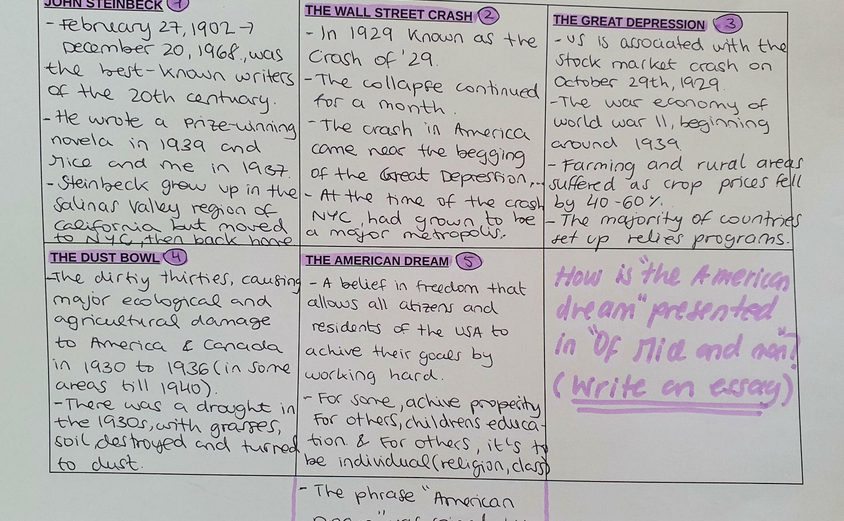 JOHN STEINBECK 1
- February 27, 1902 →
December 20, 1968, was
the best-known writers
of the 20th centuary.
- He wrote a prize-winning
novela in 1939 and
Mice and me in 1937.
- Steinbeck grew up in the
Salinas Valley region of
California but moved
to NYC, then back home
THE WALL STREET CRASH 2
- In 1929 known as the
Crash of '29.
- The collapse continued
for a month.
- The crash in America
came near the begging
of the Great Depression,..
- At the time of the crash
NYC, had grown to be
a major metropolis.
THE GREAT DEPRESSION 3
- US is associated with the
stock market crash on
October 29th, 1929.
- The war economy of
world war II, beginning
around 1939
- Farming and rural areas
suffered as crop prices fell
by 40-60%.
- The majority of countries
set up relies programs.
THE DUST BOWL 4
- The dirtiy thirties, causing
major ecological and
agricultural damage
to America & Canada
in 1930 to 1936 (in some
areas till 1940).
- There was a drought in
the 1930s, with grasses,
soil destroyed and turned
to dust.
THE AMERICAN DREAM 5
- A belief in freedom that
allows all citizens and
residents of the USA to
achive their goals by
working hard.
- For some, achive properity
For others, childrens educa-
tion & For others, it's to
be individual (religion, class)
- The phrase "American
How is "the American
dream" presented
in "Of Mice and men"?
(Write an essay)